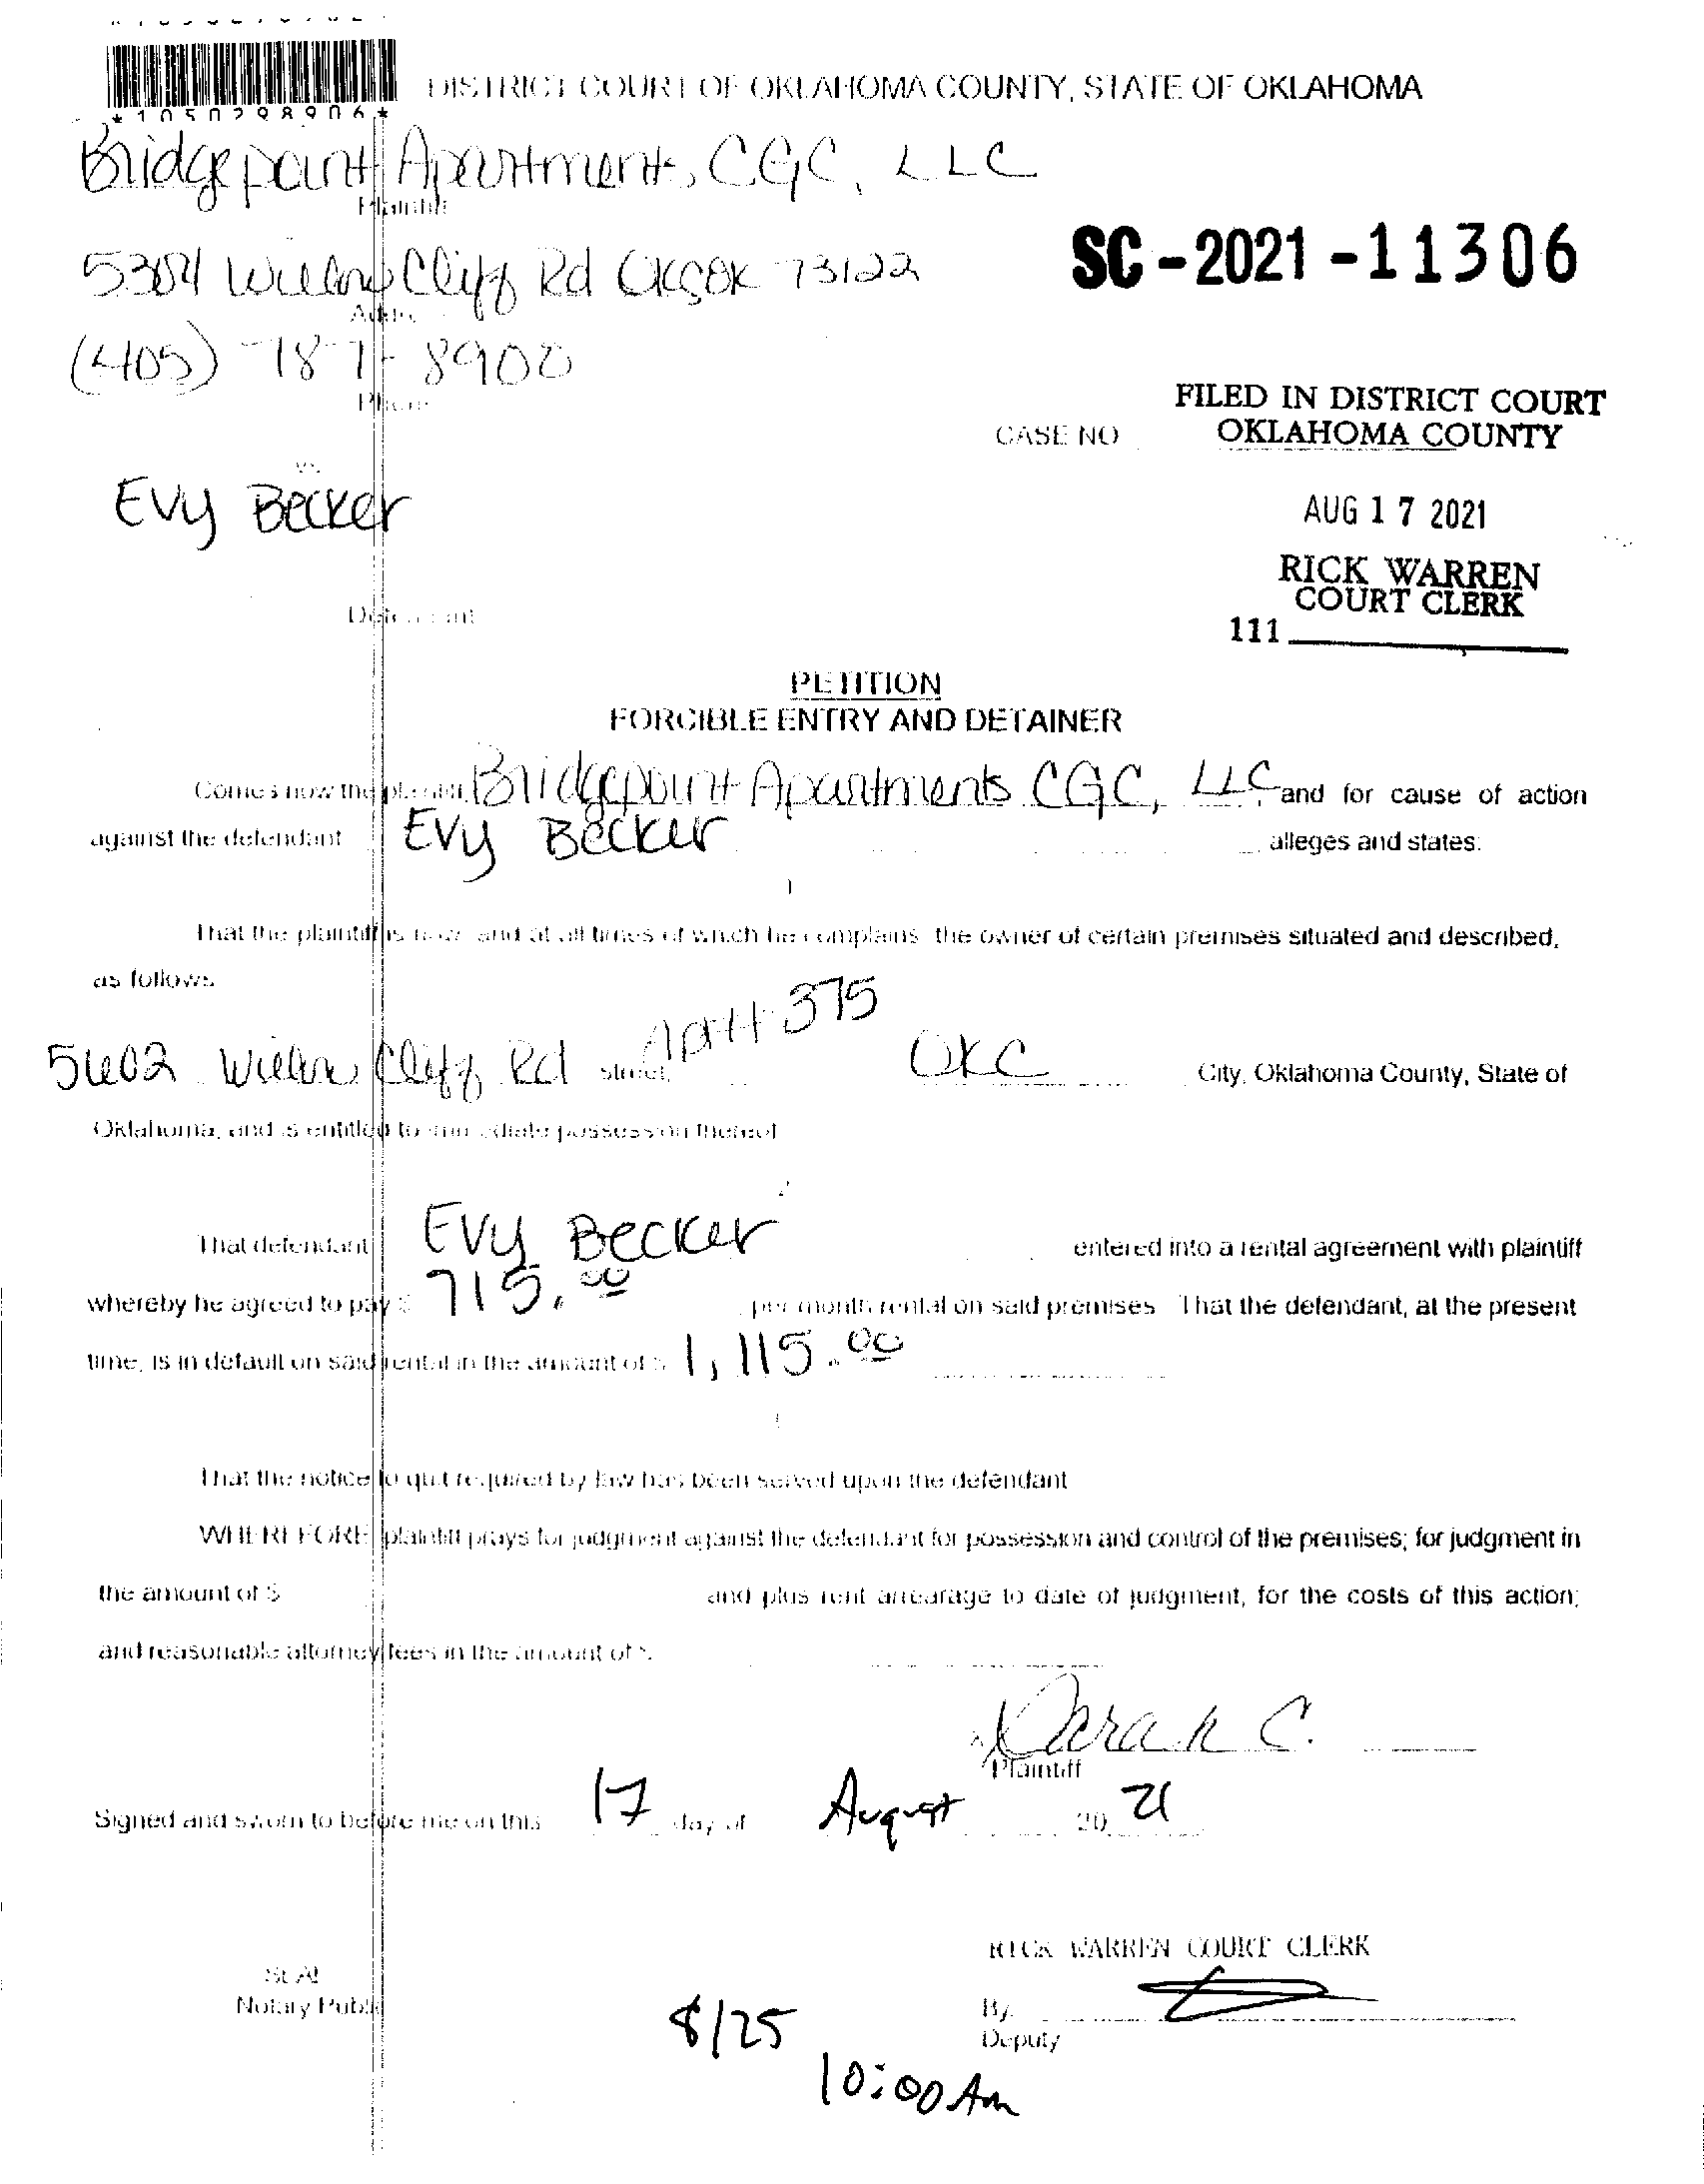 *1050298906*
DISTRICT COURT OF OKLAHOMA COUNTY, STATE OF OKLAHOMA
Bridgepoint Apartments, CGC, LLC
Plaintiff
5304 Willow Cliff Rd OKC OK 73122
SC-2021-11306
Address
(405) 787-8900
Phone
FILED IN DISTRICT COURT
OKLAHOMA COUNTY
CASE NO
vs.
Evy Becker
AUG 17 2021
RICK WARREN
COURT CLERK
Defendant
111
PETITION
FORCIBLE ENTRY AND DETAINER
Comes now the plaintiff, Bridgepoint Apartments CGC, LLC, and for cause of action
against the defendant Evy Becker alleges and states:
That the plaintiff is now and at all times of which he complains the owner of certain premises situated and described,
as follows
5602 Willow Cliff Rd Street, Apt# 375 OKC City, Oklahoma County, State of
Oklahoma, and is entitled to immediate possession thereof
That defendant Evy Becker entered into a rental agreement with plaintiff
whereby he agreed to pay $ 715.00 per month rental on said premises That the defendant, at the present
time, is in default on said rental in the amount of $ 1,115.00
That the notice to quit required by law has been served upon the defendant
WHEREFORE plaintiff prays for judgment against the defendant for possession and control of the premises; for judgment in
the amount of $ and plus rent arrearage to date of judgment, for the costs of this action;
and reasonable attorney fees in the amount of $
Sarah C.
Plaintiff
Signed and sworn to before me on this 17 day of August 20 21
RICK WARREN COURT CLERK
SEAL
Notary Public
By
Deputy
8/25
10:00 Am